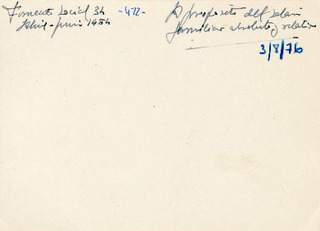 Fomento Social 34
Abril-Junio 1954
-472-
A propósito del salario
familiar absoluto y relativo
3/8/76